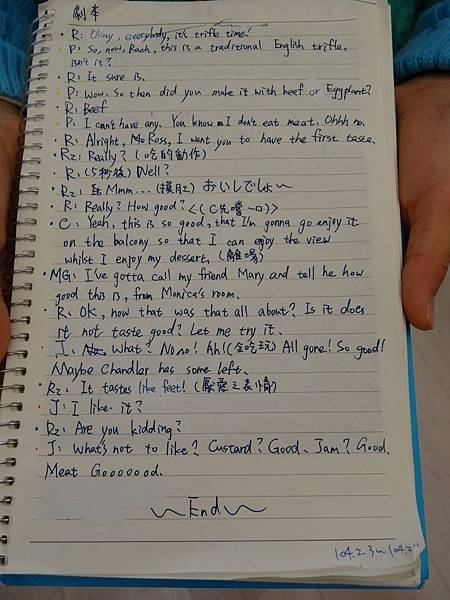 劇本
R: Okay, everybody, it's trifle time!
P: So, now, Rach, this is a traditional English trifle,
isn't it?
R: It sure is.
P: Wow. So then did you make it with beef or Eggplant?
R: Beef
P: I can't have any. You know I don't eat meat. Ohhh no.
R: Alright, Ross, I want you to have the first taste.
R2: Really? (吃的動作)
R: (5秒後) Well?
R2: Mmm... (摸肚) おいしでしょ～
R: Really? How good? <<(C先嚐一口)>>
C: Yeah, this is so good, that I'm gonna go enjoy it
on the balcony so that I can enjoy the view
whilst I enjoy my dessert. (離場)
MG: I've gotta call my friend Mary and tell he how
good this is, from Monica's room.
R: OK, now that was that all about? Is it does
it not taste good? Let me try it.
J: What? No no! Ah! (全吃玩) All gone! So good!
Maybe Chandler has some left.
R2: It tastes like feet! (厭惡之表情)
J: I like it?
R2: Are you kidding?
J: What's not to like? Custard? Good. Jam? Good.
Meat Gooooood.
～End～
104.2.3～104.2.